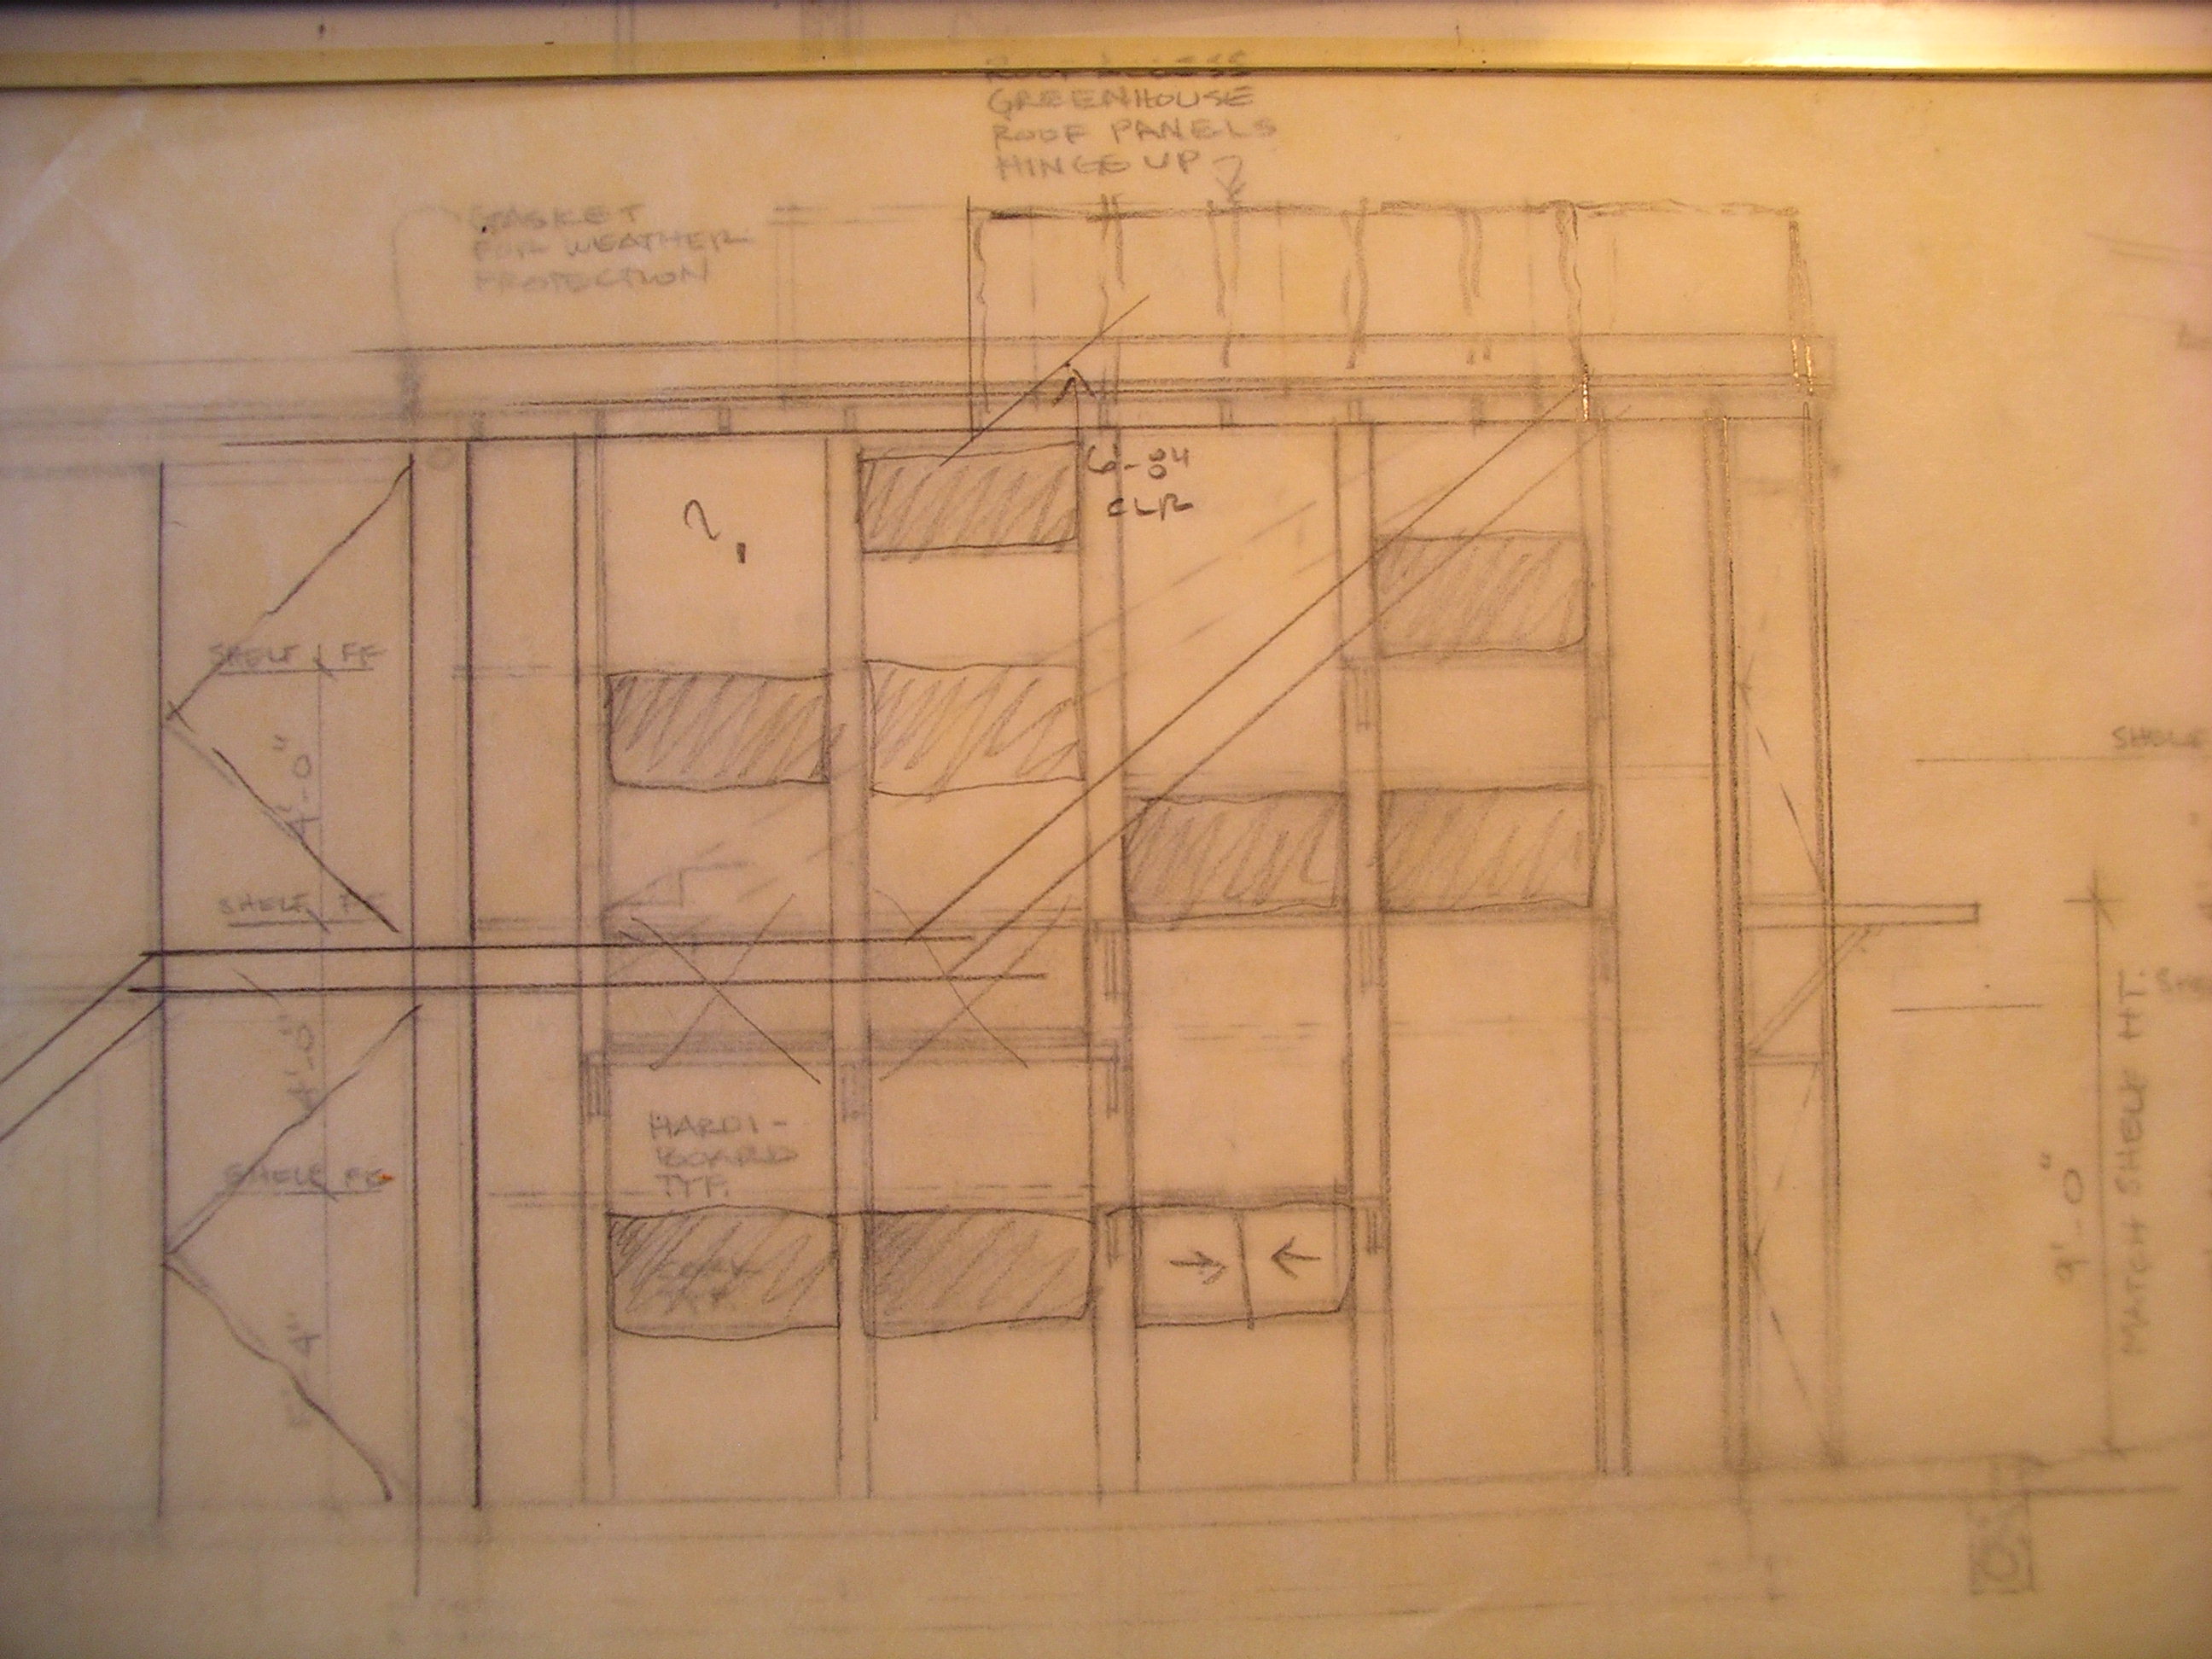 ROOF ACCESS
GREENHOUSE
ROOF PANELS
HINGE UP
GASKET
FOR WEATHER
PROTECTION
?
CLR
SHELF FF
4'-0"
SHELF FF
4'-0"
SHELF FF
HARDI-
BOARD
TYP.
SHELF
9'-0"
MATCH SHELF HT.